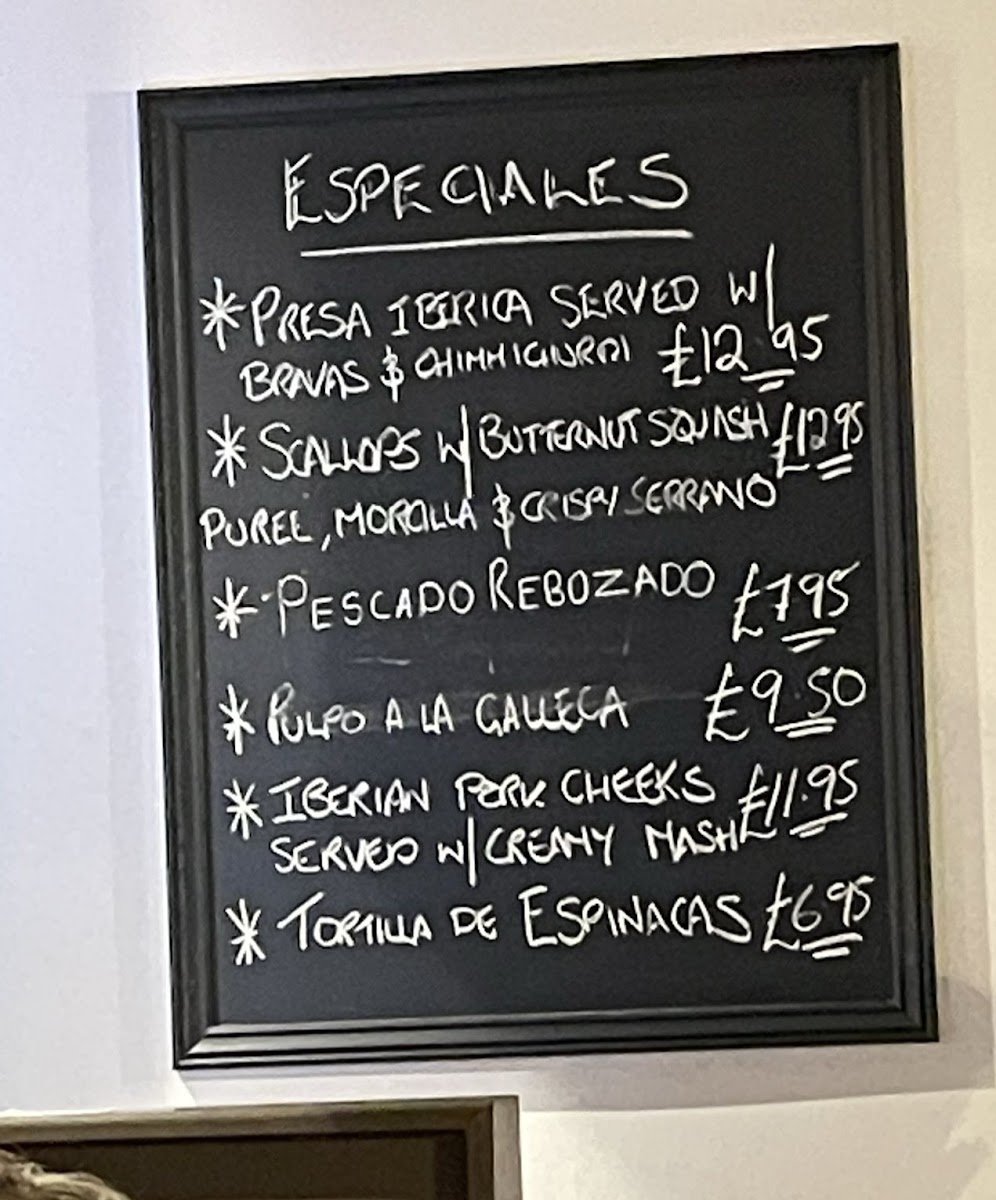 ESPECIALES
*PRESA IBERICA SERVED W/
BRAVAS & CHIMMICHURRI £12.95
* SCALLOPS W/ BUTTERNUT SQUASH £12.95
PUREE, MORCILLA & CRISPY SERRANO
* PESCADO REBOZADO £7.95
* PULPO A LA GALLEGA £9.50
* IBERIAN PORK CHEEKS £11.95
SERVED W/ CREAMY MASH
* TORTILLA DE ESPINACAS £6.95